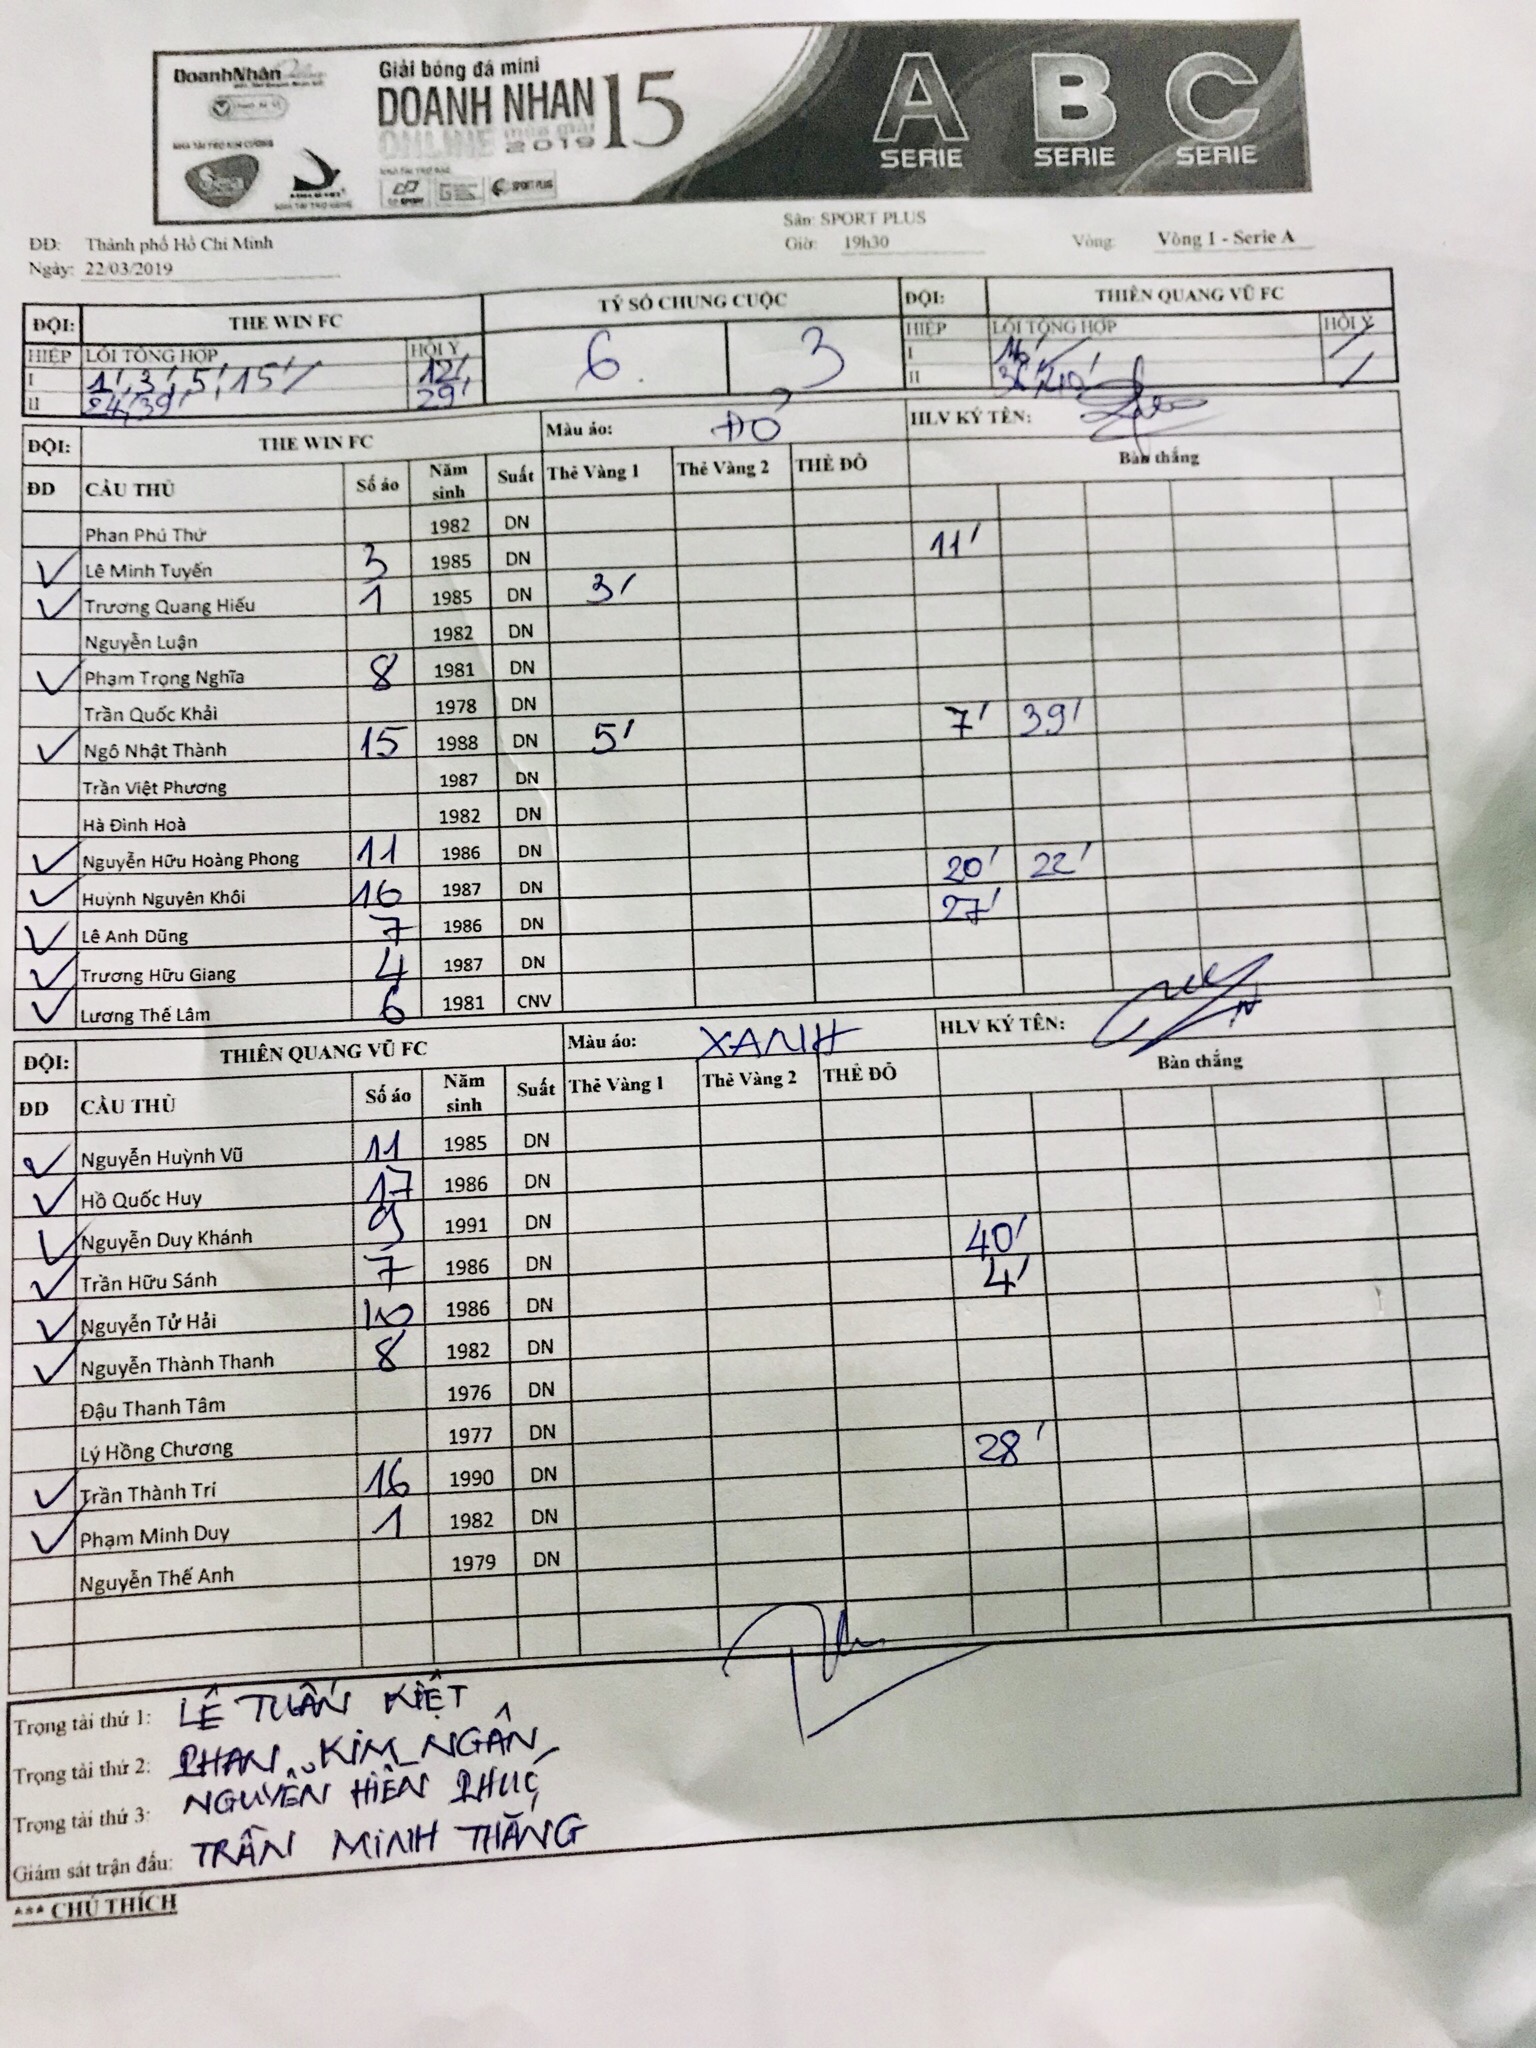 DoanhNhân
Giải bóng đá mini
DOANH NHAN 15
ONLINE mùa giải
2019
NHÀ TÀI TRỢ KIM CƯƠNG
SPORT PLUS
A SERIE
B SERIE
C SERIE
ĐĐ: Thành phố Hồ Chí Minh
Sân: SPORT PLUS
Ngày: 22/03/2019
Giờ: 19h30
Vòng: Vòng 1 - Serie A
ĐỘI: THE WIN FC TỶ SỐ CHUNG CUỘC ĐỘI: THIÊN QUANG VŨ FC
HIỆP LỖI TỔNG HỢP HỘI Ý 6 3 HIỆP LỖI TỔNG HỢP HỘI Ý
I 1', 3', 5', 15' 12' I
II 24', 39' 29' II
ĐỘI: THE WIN FC Màu áo: ĐỎ HLV KÝ TÊN:
ĐD CẦU THỦ Số áo Năm sinh Suất Thẻ Vàng 1 Thẻ Vàng 2 THẺ ĐỎ Bàn thắng
Phan Phú Thứ 1982 DN
✓ Lê Minh Tuyến 3 1985 DN 11'
✓ Trương Quang Hiếu 1 1985 DN 3'
Nguyễn Luận 1982 DN
✓ Phạm Trọng Nghĩa 8 1981 DN
Trần Quốc Khải 1978 DN
✓ Ngô Nhật Thành 15 1988 DN 5' 7' 39'
Trần Việt Phương 1987 DN
Hà Đình Hoà 1982 DN
✓ Nguyễn Hữu Hoàng Phong 11 1986 DN
✓ Huỳnh Nguyên Khôi 16 1987 DN 20' 22'
✓ Lê Anh Dũng 7 1986 DN 27'
✓ Trương Hữu Giang 4 1987 DN
✓ Lương Thế Lâm 6 1981 CNV
ĐỘI: THIÊN QUANG VŨ FC Màu áo: XANH HLV KÝ TÊN:
ĐD CẦU THỦ Số áo Năm sinh Suất Thẻ Vàng 1 Thẻ Vàng 2 THẺ ĐỎ Bàn thắng
✓ Nguyễn Huỳnh Vũ 11 1985 DN
✓ Hồ Quốc Huy 17 1986 DN
✓ Nguyễn Duy Khánh 9 1991 DN 40'
✓ Trần Hữu Sánh 7 1986 DN 4'
✓ Nguyễn Tử Hải 10 1986 DN
✓ Nguyễn Thành Thanh 8 1982 DN
Đậu Thanh Tâm 1976 DN
Lý Hồng Chương 1977 DN
✓ Trần Thành Trí 16 1990 DN 28'
✓ Phạm Minh Duy 1 1982 DN
Nguyễn Thế Anh 1979 DN
Trọng tài thứ 1: LÊ TUẤN KIỆT
Trọng tài thứ 2: PHAN KIM NGÂN
Trọng tài thứ 3: NGUYỄN HIỀN PHÚC
Giám sát trận đấu: TRẦN MINH THẮNG
*** CHÚ THÍCH